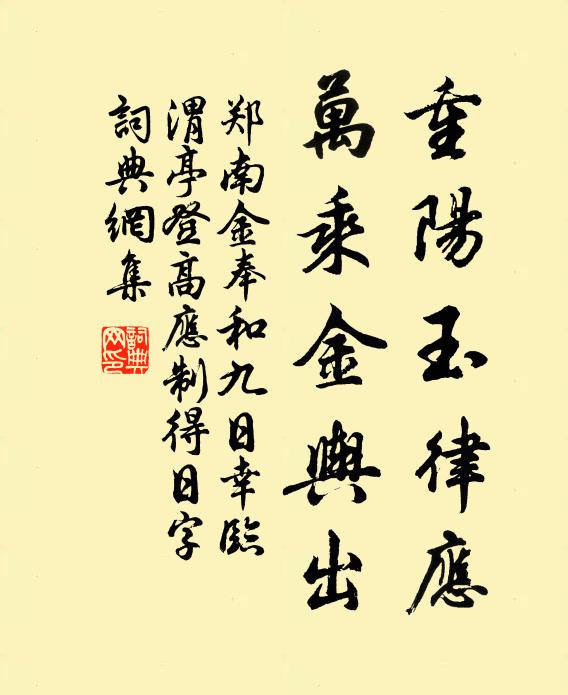 重陽玉律應
萬乘金輿出
郑南金奉和九日幸臨
渭亭登高應制得日字
詞典網集
詞典網印